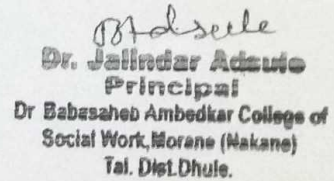 Dr. Jalindar Adsule
Principal
Dr Babasaheb Ambedkar College of
Social Work, Morane (Nakane)
Tal. Dist.Dhule.